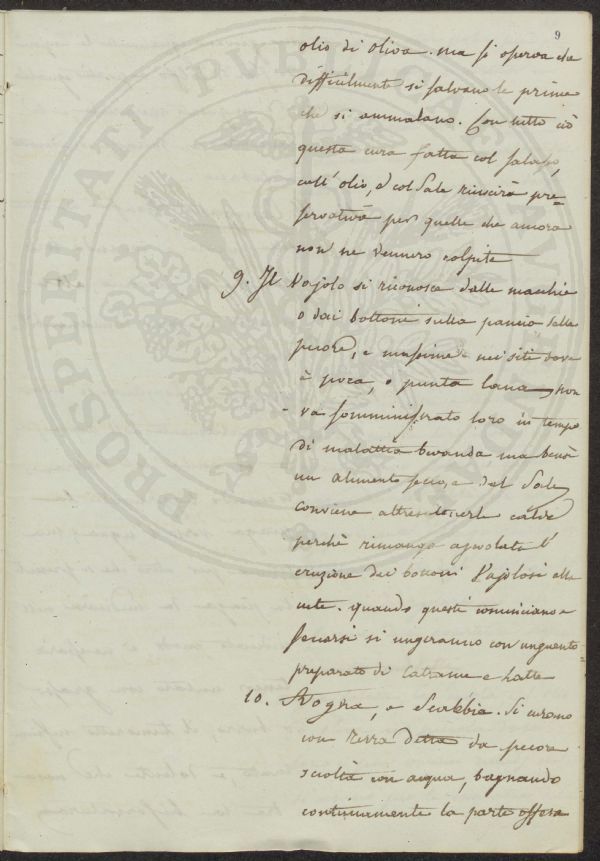 9
olio di oliva. ma si osserva che
difficilmente si salvano le prime
che si ammalano. Con tutto ciò
questa cura fatta col salasso,
coll' olio, e col Sale riuscirà pre=
servativa per quelle che ancora
non ne vennero colpite
9. Il Vajolo si riconosce dalle macchie
o dai bottoni sulla pancia delle
pecore, e massime nei siti dove
è poca, o punta lana, non
va somministrato loro in tempo
di malattia bevanda ma bensì
un alimento secco, e del Sale
conviene altresì tenerle calde
perchè rimanga agevolata l'
eruzione dei bottoni Vajolosi alla
cute. quando questi cominciano a
seccarsi si ungeranno con unguento
preparato di Catrame e
10. Rogna, e Scabbia. Si curano
con Terra detta da pecore
sciolta con acqua, bagnando
continuamente la parte offesa
PROSPERITATI PUBLICAE